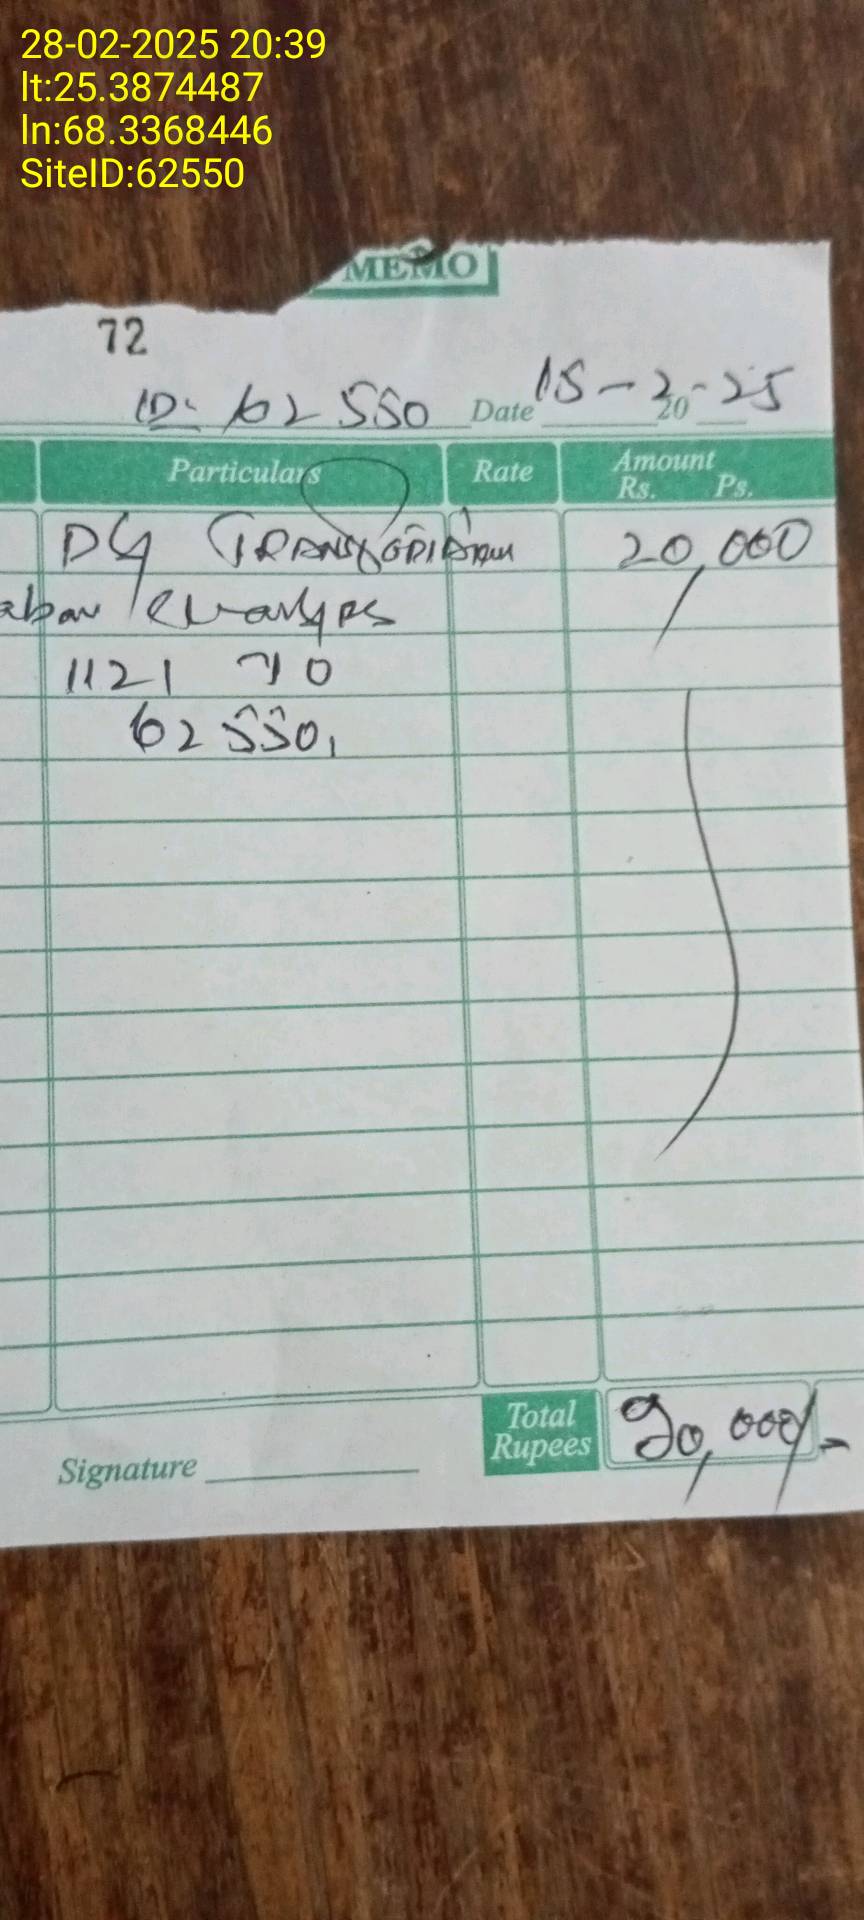 28-02-2025 20:39
lt:25.3874487
ln:68.3368446
SiteID:62550
MEMO
72
ID: 62550 Date 15-2-25 20
Particulars Rate Amount
Rs. Ps.
DG 20,000
charges
1121 70
62550,
Total
Rupees 20,000/-
Signature